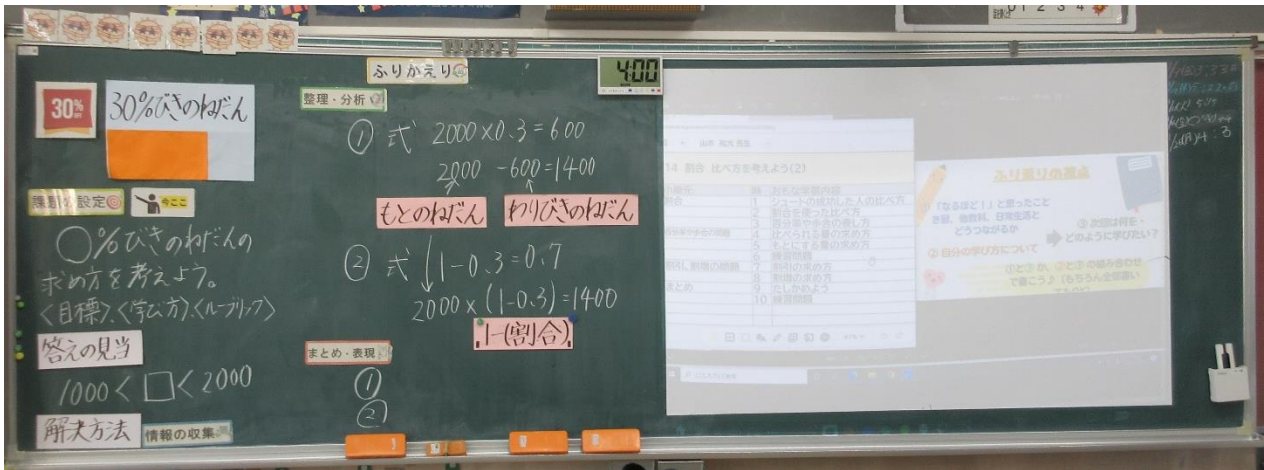 30%
OFF
30%びきのねだん
課題の設定
今ここ
○%びきのねだんの
求め方を考えよう。
<目標>、<学び方>、<ルーブリック>
答えの見当
1000<□<2000
解決方法
情報の収集
ふりかえり
整理・分析
① 式 2000×0.3=600
2000-600=1400
もとのねだん
わりびきのねだん
② 式 1-0.3=0.7
2000×(1-0.3)=1400
1-(割合)
まとめ・表現
①
②
4:00
14 割合 比べ方を考えよう(2)
小単元 時 おもな学習内容
割合 1 シュートの成功した人の比べ方
2 割合を使った比べ方
3 百分率や歩合の表し方
4 比べられる量の求め方
5 もとにする量の求め方
6 練習問題
割引、割増の問題 7 割引の求め方
8 割増の求め方
まとめ 9 たしかめよう
10 練習問題
ふり返りの視点
「なるほど!」と思ったこと
他教科、日常生活と
どうつながるか
② 自分の学び方について
③ 次回は何を・
どのように学びたい?
の組み合わせ
で書こう♪(もちろん全部書い
1 2 3 4